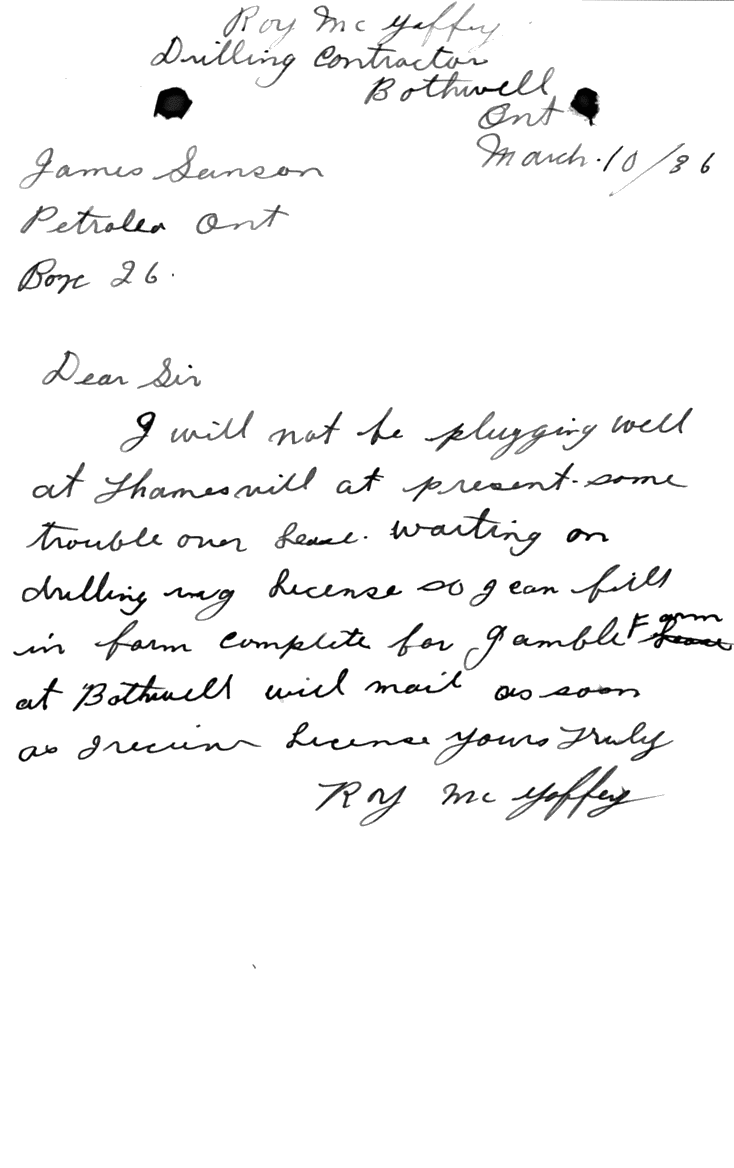 Roy Mc Gaffey
Drilling Contractor
Bothwell
Ont
March. 10/36
James Sanson
Petrolea Ont
Box 26.
Dear Sir
I will not be plugging well
at Thamesvill at present. some
trouble over Lease. waiting on
drilling rig License so I can fill
in form complete for Gamble Farm
at Bothwell will mail as soon
as I recieve License Yours Truly
Roy Mc Gaffey